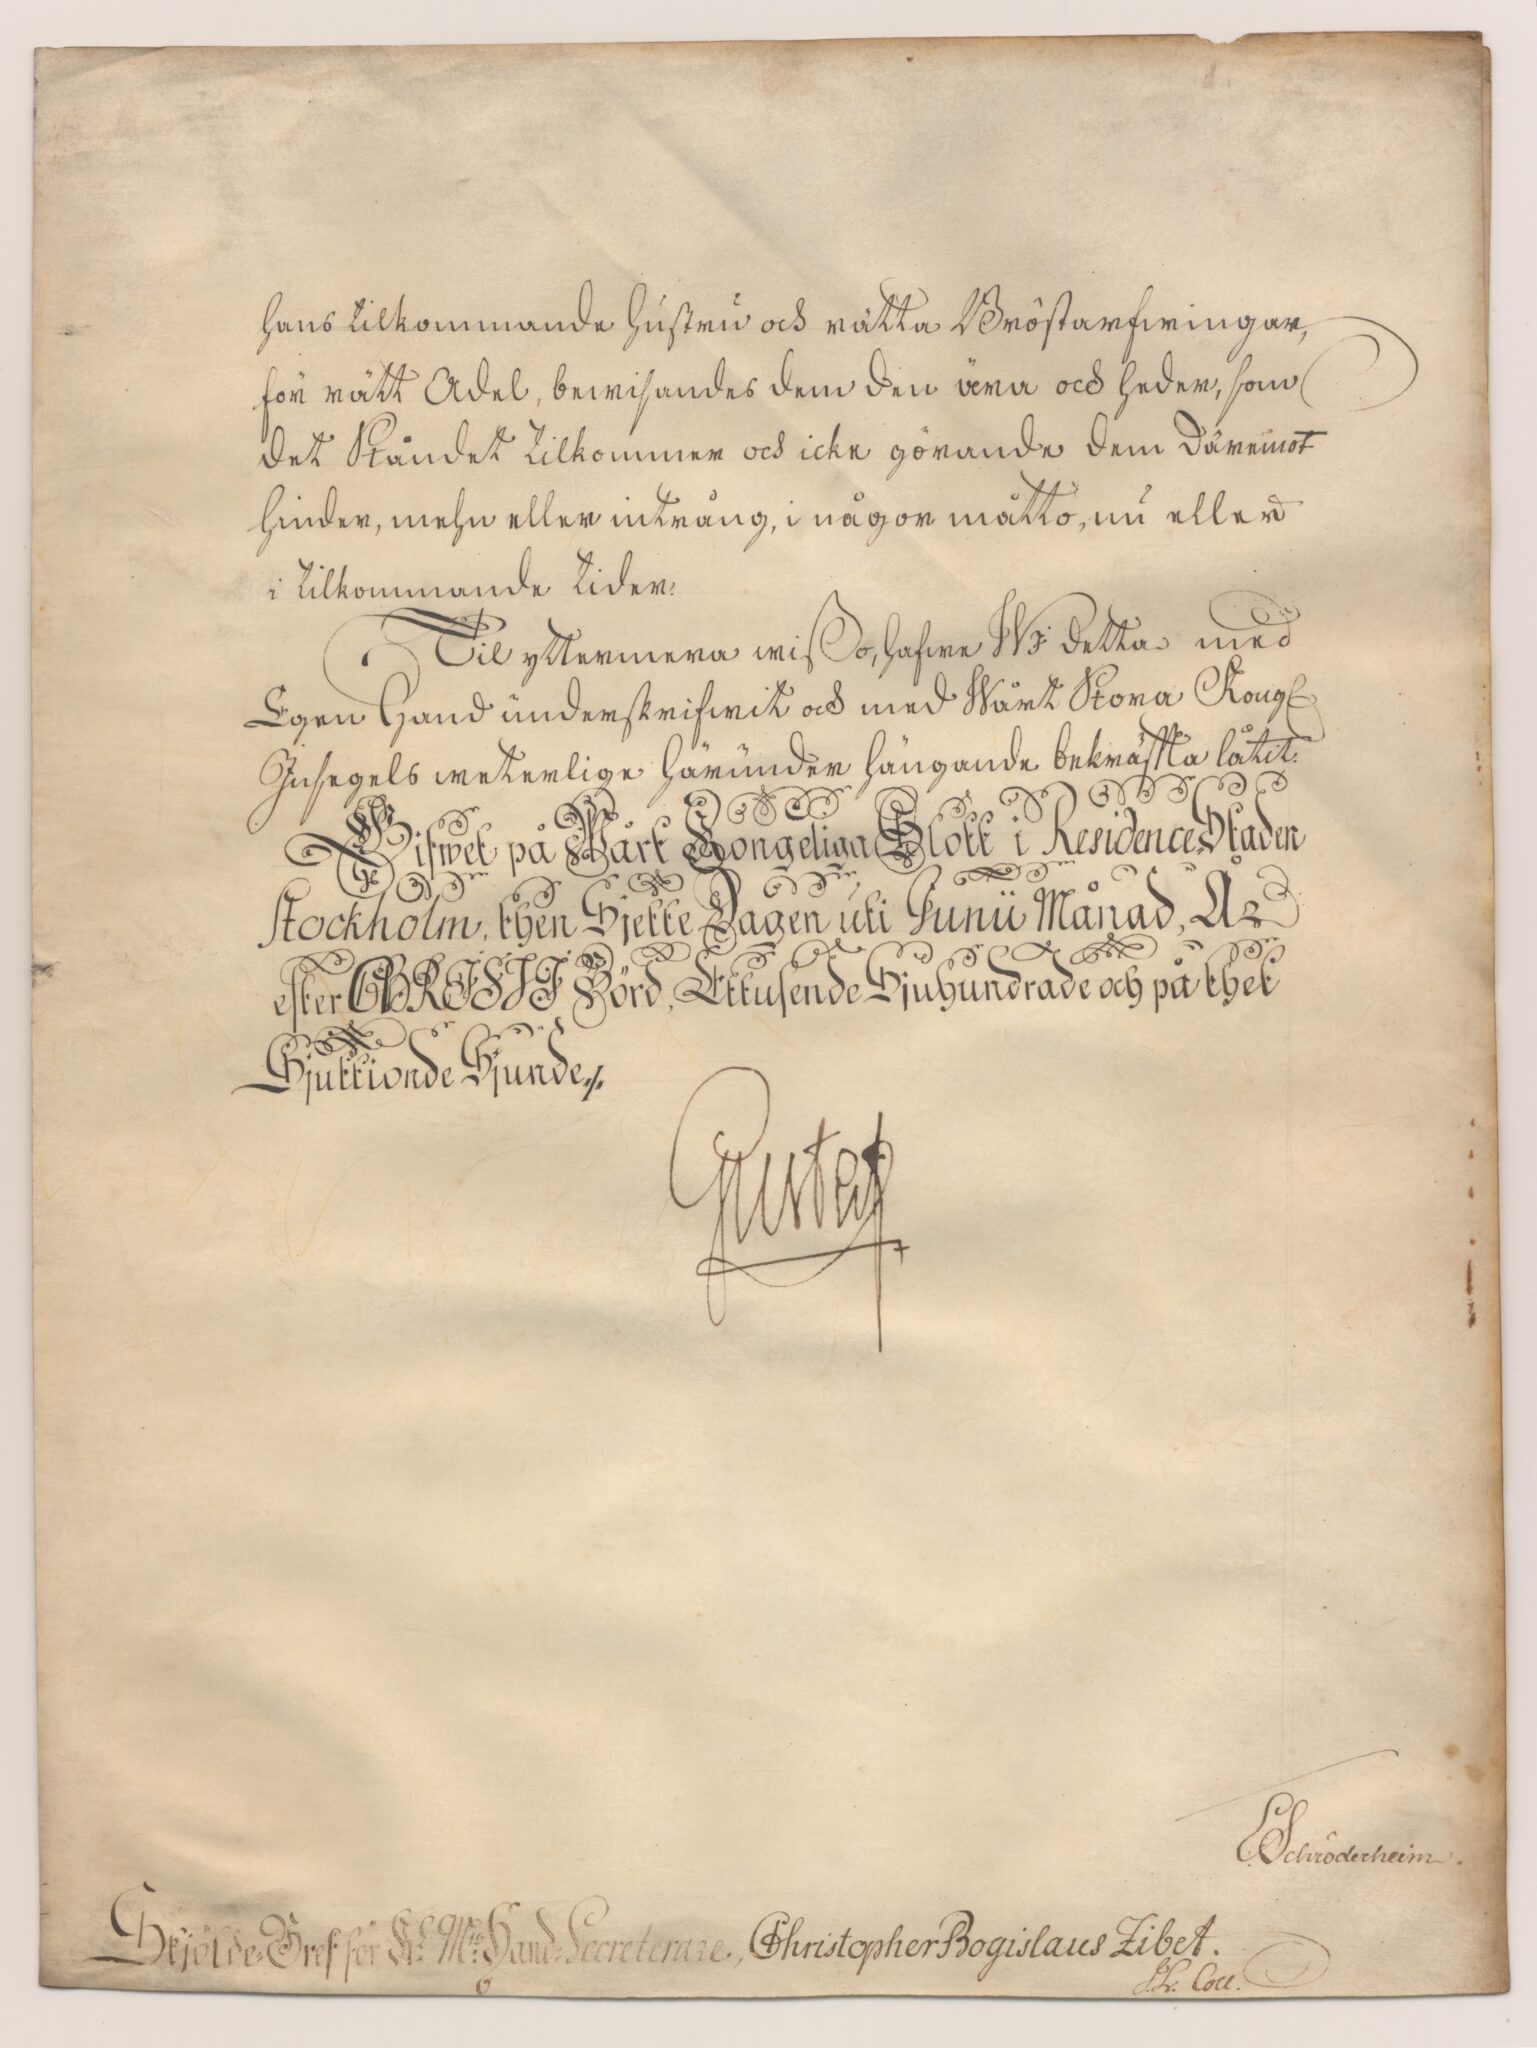 hans tilkommande hustru och rätta Bröstarfwingar,
för rätt Adel, bewisandes dem den ära och heder, som
det Ståndet tilkommer och icke görande dem däremot
hinder, mehn eller intrång, i någor måtto, nu eller
i tilkommande tider.
Til yttermera wißo, hafwe Wi detta med
Egen Hand underskrifwit och med Wårt Stora Kongl.
Insegels weterlige härunder hängande bekräfta låtit.
Gifwet på Wårt Kongeliga Slott i Residence Staden
Stockholm, then Sjette Dagen uti Junii Månad, År
efter CHRISTI Börd, Ettusende Sjuhundrade och på thet
Sjuttionde Sjunde ./.
Gustaf
E Schröderheim.
Sköldebref för K. M:ts Hand-Secreterare, Christopher Bogislaus Zibet.
Coll.